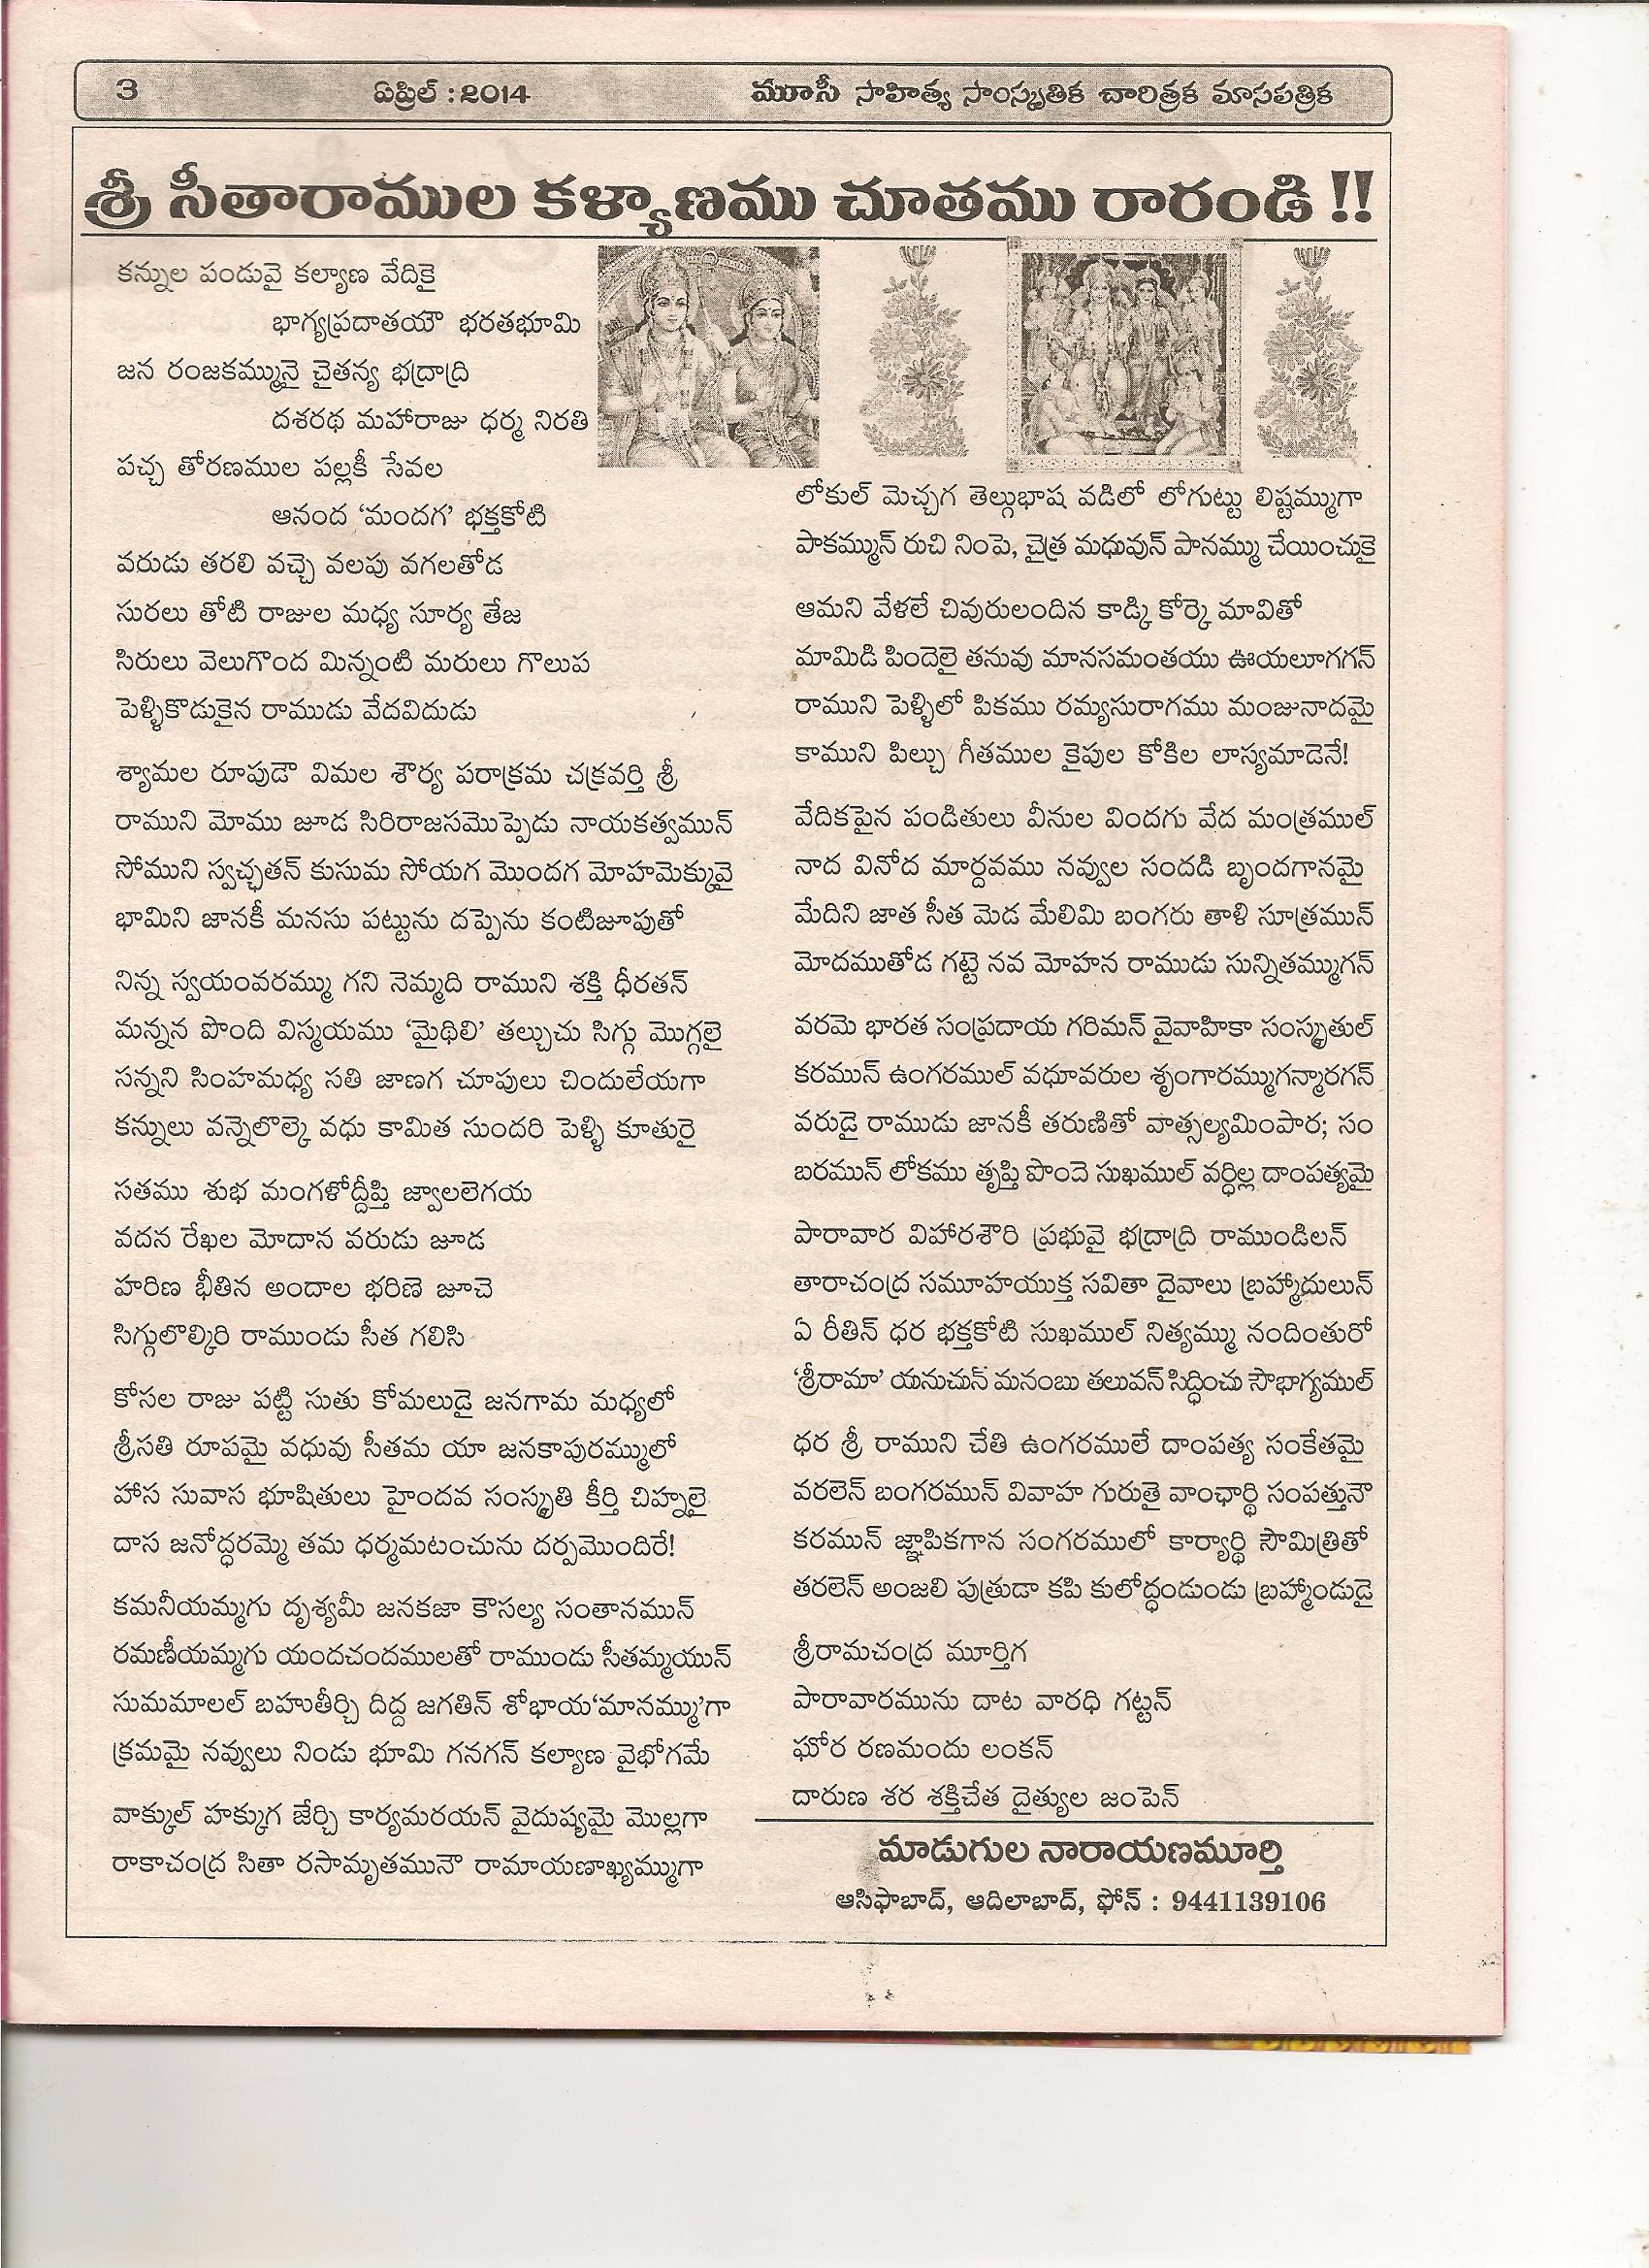 3 ఏప్రిల్ : 2014 మూసీ సాహిత్య సాంస్కృతిక చారిత్రక మాసపత్రిక
శ్రీ సీతారాముల కళ్యాణము చూతము రారండి !!
కన్నుల పండువై కల్యాణ వేదికై
భాగ్యప్రదాతయౌ భరతభూమి
జన రంజకమ్మునై చైతన్య భద్రాద్రి
దశరథ మహారాజు ధర్మ నిరతి
పచ్చ తోరణముల పల్లకీ సేవల
ఆనంద ‘మందగ’ భక్తకోటి
వరుడు తరలి వచ్చె వలపు వగలతోడ
సురలు తోటి రాజుల మధ్య సూర్య తేజ
సిరులు వెలుగొంద మిన్నంటి మరులు గొలుప
పెళ్ళికొడుకైన రాముడు వేదవిదుడు
శ్యామల రూపుడౌ విమల శౌర్య పరాక్రమ చక్రవర్తి శ్రీ
రాముని మోము జూడ సిరిరాజసమొప్పెడు నాయకత్వమున్
సోముని స్వచ్ఛతన్ కుసుమ సోయగ మొందగ మోహమెక్కువై
భామిని జానకీ మనసు పట్టును దప్పెను కంటిజూపుతో
నిన్న స్వయంవరమ్ము గని నెమ్మది రాముని శక్తి ధీరతన్
మన్నన పొంది విస్మయము ‘మైథిలి’ తల్చుచు సిగ్గు మొగ్గలై
సన్నని సింహమధ్య సతి జాణగ చూపులు చిందులేయగా
కన్నులు వన్నెలొల్కె వధు కామిత సుందరి పెళ్ళి కూతురై
సతము శుభ మంగళోద్దీప్తి జ్వాలలెగయ
వదన రేఖల మోదాన వరుడు జూడ
హరిణ భీతిన అందాల భరిణె జూచె
సిగ్గులొల్కిరి రాముండు సీత గలిసి
కోసల రాజు పట్టి సుతు కోమలుడై జనగామ మధ్యలో
శ్రీసతి రూపమై వధువు సీతమ యా జనకాపురమ్ములో
హాస సువాస భూషితులు హైందవ సంస్కృతి కీర్తి చిహ్నలై
దాస జనోద్ధరమ్మె తమ ధర్మమటంచును దర్పమొందిరే!
కమనీయమ్మగు దృశ్యమీ జనకజా కౌసల్య సంతానమున్
రమణీయమ్మగు యందచందములతో రాముండు సీతమ్మయున్
సుమమాలల్ బహుతీర్చి దిద్ద జగతిన్ శోభాయ‘మానమ్ము’గా
క్రమమై నవ్వులు నిండు భూమి గనగన్ కల్యాణ వైభోగమే
వాక్కుల్ హక్కుగ జేర్చి కార్యమరయన్ వైదుష్యమై మొల్లగా
రాకాచంద్ర సితా రసామృతమునౌ రామాయణాఖ్యమ్ముగా
లోకుల్ మెచ్చగ తెల్గుభాష వడిలో లోగుట్టు లిష్టమ్ముగా
పాకమ్మున్ రుచి నింపె, చైత్ర మధువున్ పానమ్ము చేయించుకై
ఆమని వేళలే చివురులందిన కాడ్కి కోర్కె మావితో
మామిడి పిందెలై తనువు మానసమంతయు ఊయలూగగన్
రాముని పెళ్ళిలో పికము రమ్యసురాగము మంజునాదమై
కాముని పిల్చు గీతముల కైపుల కోకిల లాస్యమాడెనే!
వేదికపైన పండితులు వీనుల విందగు వేద మంత్రముల్
నాద వినోద మార్దవము నవ్వుల సందడి బృందగానమై
మేదిని జాత సీత మెడ మేలిమి బంగరు తాళి సూత్రమున్
మోదముతోడ గట్టె నవ మోహన రాముడు సున్నితమ్ముగన్
వరమె భారత సంప్రదాయ గరిమన్ వైవాహికా సంస్కృతుల్
కరమున్ ఉంగరముల్ వధూవరుల శృంగారమ్ముగన్మారగన్
వరుడై రాముడు జానకీ తరుణితో వాత్సల్యమింపార; సం
బరమున్ లోకము తృప్తి పొందె సుఖముల్ వర్ధిల్ల దాంపత్యమై
పారావార విహారశౌరి ప్రభువై భద్రాద్రి రాముండిలన్
తారాచంద్ర సమూహయుక్త సవితా దైవాలు బ్రహ్మాదులున్
ఏ రీతిన్ ధర భక్తకోటి సుఖముల్ నిత్యమ్ము నందింతురో
‘శ్రీరామా’ యనుచున్ మనంబు తలువన్ సిద్ధించు సౌభాగ్యముల్
ధర శ్రీ రాముని చేతి ఉంగరములే దాంపత్య సంకేతమై
వరలెన్ బంగరమున్ వివాహ గురుతై వాంఛార్థి సంపత్తునౌ
కరమున్ జ్ఞాపికగాన సంగరములో కార్యార్థి సౌమిత్రితో
తరలెన్ అంజలి పుత్రుడా కపి కులోద్ధండుండు బ్రహ్మాండుడై
శ్రీరామచంద్ర మూర్తిగ
పారావారమును దాట వారధి గట్టన్
ఘోర రణమందు లంకన్
దారుణ శర శక్తిచేత దైత్యుల జంపెన్
మాడుగుల నారాయణమూర్తి
ఆసిఫాబాద్, ఆదిలాబాద్, ఫోన్ : 9441139106